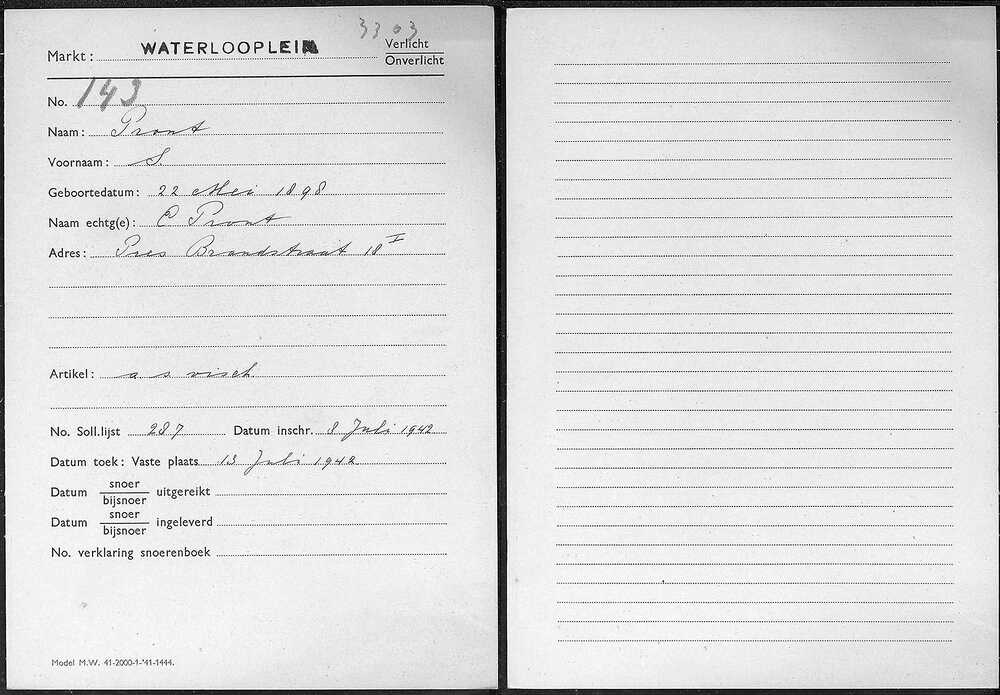 3303
Markt: WATERLOOPLEIN Verlicht
Onverlicht
No. 143
Naam: Pront
Voornaam: S.
Geboortedatum: 22 Mei 1898
Naam echtg(e): C Pront
Adres: Pres Brandstraat 18 I
Artikel: a s visch
No. Soll.lijst 287 Datum inschr. 8 Juli 1942
Datum toek: Vaste plaats 13 Juli 1942
Datum snoer
bijsnoer uitgereikt
Datum snoer
bijsnoer ingeleverd
No. verklaring snoerenboek
Model M.W. 41-2000-1-'41-1444.